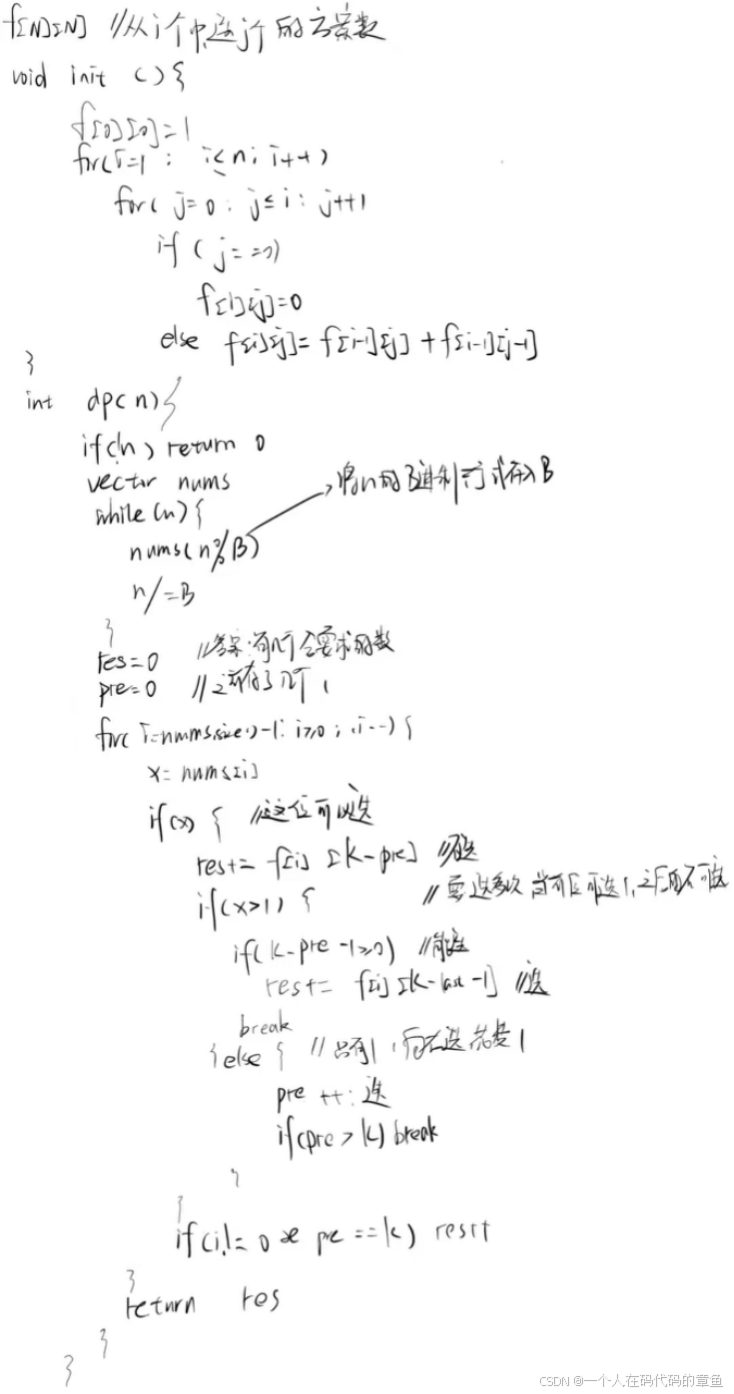 f[N][N] //从i个中选j个的方案数
void init () {
f[0][0]=1
for(i=1; i≤n; i++)
for( j=0; j≤i; j++)
if (j==0)
f[i][j]=0
else f[i][j]= f[i-1][j] + f[i-1][j-1]
}
int dp(n){
if(!n) return 0
vector nums
while(n){
nums(n%B)
将n的B进制 存入B
n/=B
}
res=0 //答案: 要求的数
pre=0 //之前有了几个1
for( i=nums.size()-1; i≥0; i--) {
x= nums[i]
if(x) { //这位可以选
res+= f[i][k-pre] //不选
if(x>1) { //要选
if(k-pre-1≥0) //能选
res+= f[i][k-last-1] //选
break
}else { //只有1,
pre ++; 选
if(pre > k) break
}
}
if(i!=0 && pre ==k) res++
}
return res
}
}
CSDN @一个人在码代码的章鱼